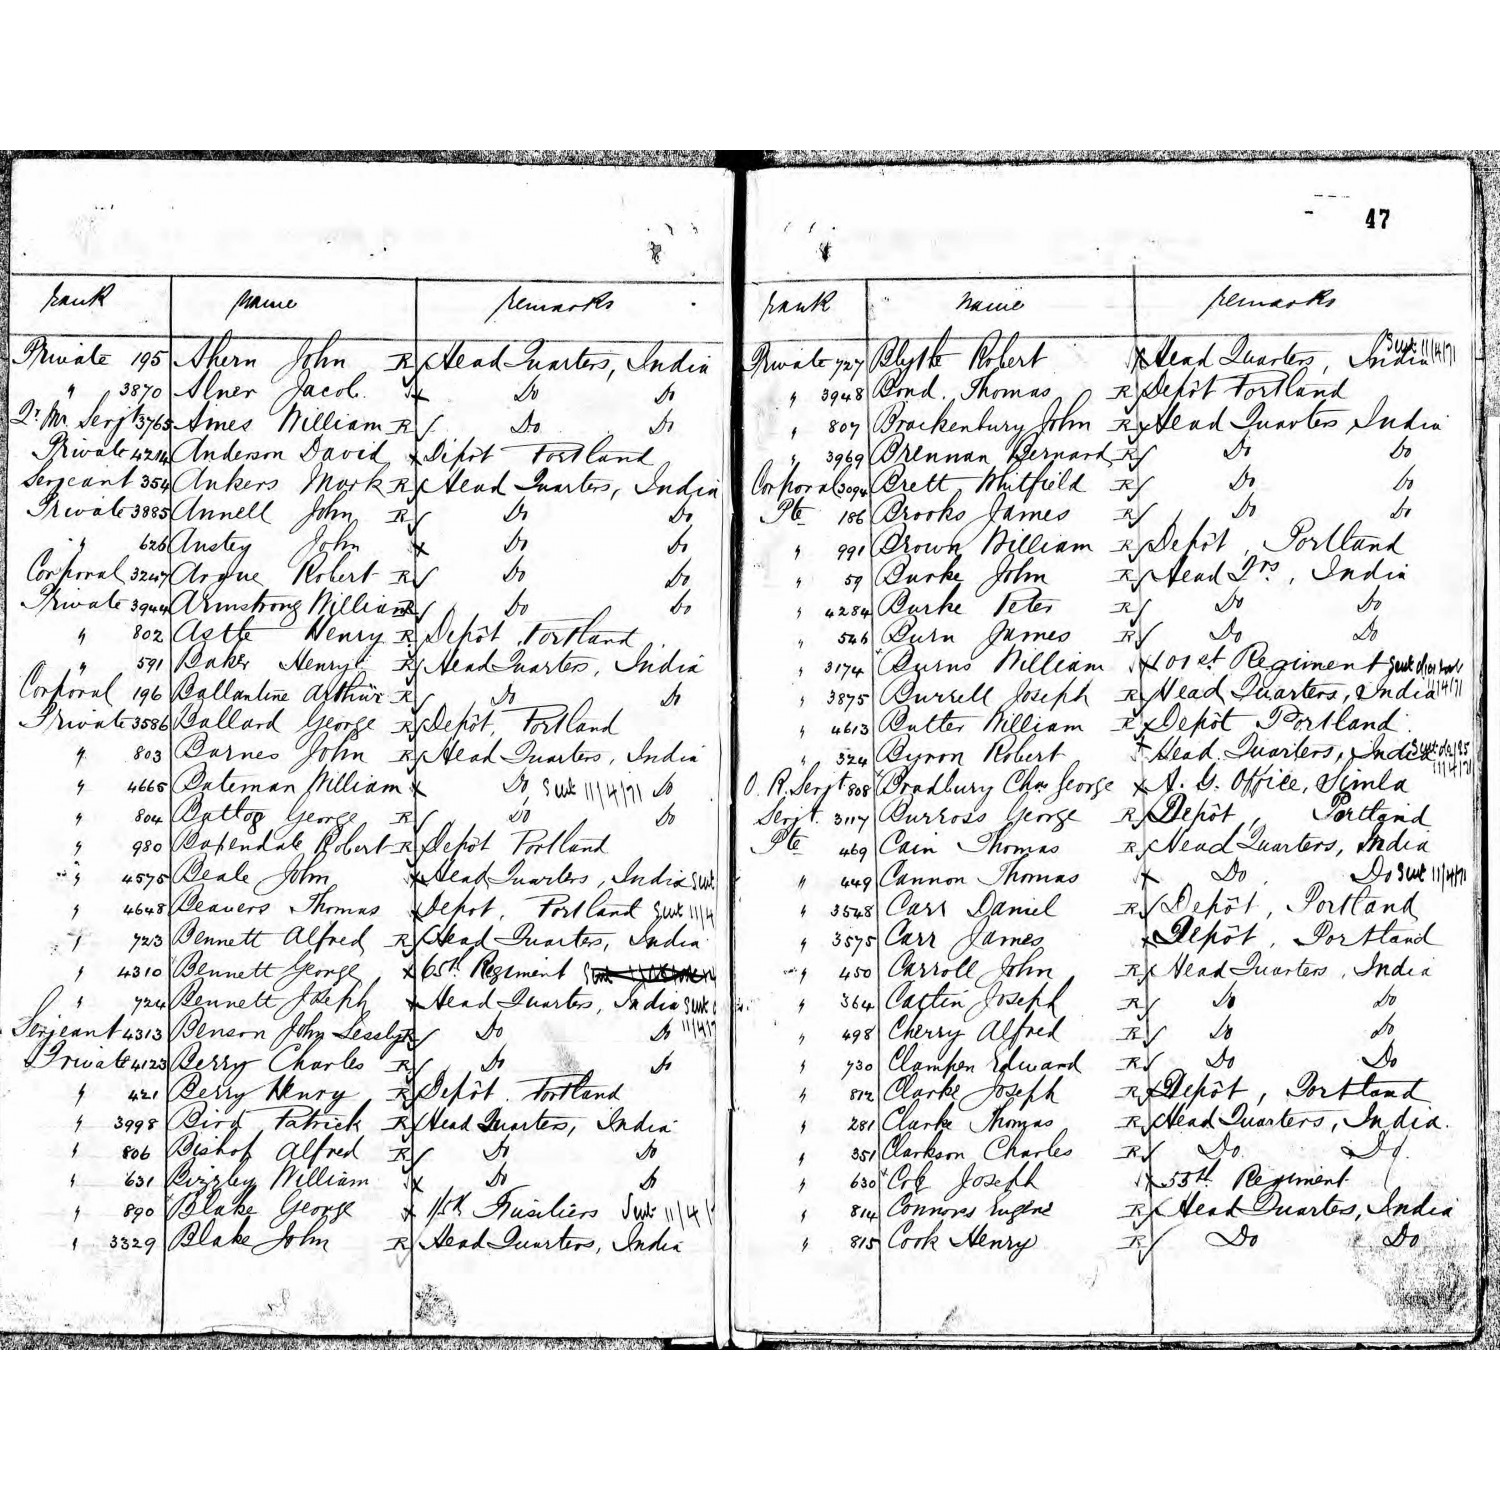 rank name remarks
Private 195 Ahern John R Head Quarters, India
" 3870 Alner Jacob x Do Do
Qr. Mr. Serjt 3765 Ames William R Do Do
Private 4214 Anderson David x Depôt Portland
Serjeant 354 Ankers Mark R Head Quarters, India
Private 3885 Annell John R Do Do
" 626 Anstey John x Do Do
Corporal 3247 Argue Robert R Do Do
Private 3944 Armstrong William R Do Do
" 802 Astle Henry R Depôt Portland
" 591 Baker Henry R Head Quarters, India
Corporal 196 Ballantine Arthur R Do Do
Private 3586 Ballard George R Depôt, Portland
" 803 Barnes John R Head Quarters, India
" 4665 Bateman William x Do Sent 11/4/71 Do
" 804 George R Do Do
" 980 Baxendale Robert R Depôt Portland
" 4575 Beale John x Head Quarters, India Sent
" 4648 Beavers Thomas x Depot, Portland Sent 11/4
" 723 Bennett Alfred R Head Quarters, India
" 4310 Bennett George x 65th Regiment
" 724 Bennett Joseph x Head Quarters, India Sent
Serjeant 4313 Benson John Lessly R Do Do 11/4/7
Private 4123 Berry Charles R Do Do
" 421 Berry Henry R Depôt Portland
" 3998 Bird Patrick R Head Quarters, India
" 806 Bishop Alfred R Do Do
" 631 Bizzley William x Do Do
" 890 Blake George x Fusiliers Sent 11/4/
" 3329 Blake John R Head Quarters, India
47
rank name remarks
Private 727 Blythe Robert x Head Quarters, India Sent 11/4/71
" 3948 Bond Thomas R Depôt Portland
" 807 Brackenbury John R Head Quarters India
" 3969 Brennan Bernard R Do Do
Corporal 3094 Brett Whitfield R Do Do
Pte 186 Brooks James R Do Do
" 991 Brown William R Depôt, Portland
" 59 Burke John R Head Qrs, India
" 4284 Burke Peter R Do Do
" 546 Burn James R Do Do
" 3174 Burns William x 101st Regiment Sent
" 3875 Burrell Joseph R Head Quarters, India 11/4/71
" 4613 Butler William R Depôt Portland
" 324 Byron Robert x Head Quarters, India Sent
O. R. Serjt 808 Bradbury Chas George x A. G. Office, Simla 11/4/71
Serjt. 3117 Burross George R Depôt, Portland
Pte 469 Cain Thomas R Head Quarters, India
" 449 Cannon Thomas x Do Do Sent 11/4/71
" 3548 Carr Daniel R Depôt, Portland
" 3575 Carr James x Depôt, Portland
" 450 Carroll John R Head Quarters, India
" 364 Castin Joseph R Do Do
" 498 Cherry Alfred R Do Do
" 730 Clampen Edward R Do Do
" 812 Clarke Joseph R Depôt, Portland
" 281 Clarke Thomas R Head Quarters, India.
" 351 Clarkson Charles R Do Do
" 630 Joseph x 55th Regiment
" 814 Connors Eugene R Head Quarters, India
" 815 Cook Henry R Do Do